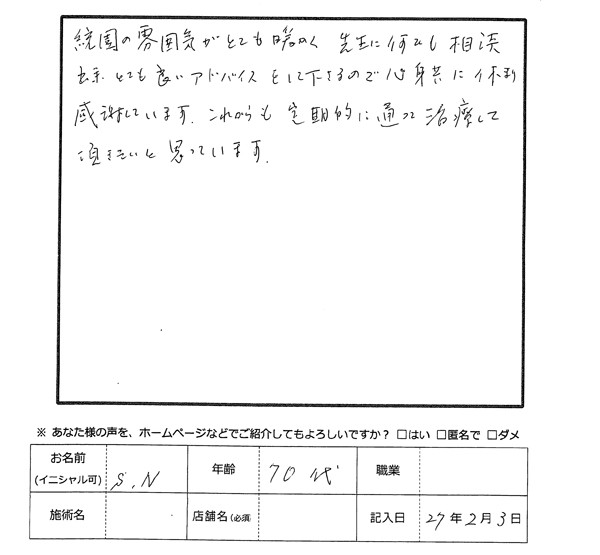 の雰囲気がとても暖かく 先生に何でも相談
出来 とても良いアドバイスをして下さるので心身共に
感謝しています。これからも定期的に通って治療して
頂きたいと思っています。
※ あなた様の声を、ホームページなどでご紹介してもよろしいですか? □はい □匿名で □ダメ
お名前 (イニシャル可) S.N 年齢 70代 職業
施術名 店舗名(必須) 記入日 27年2月3日